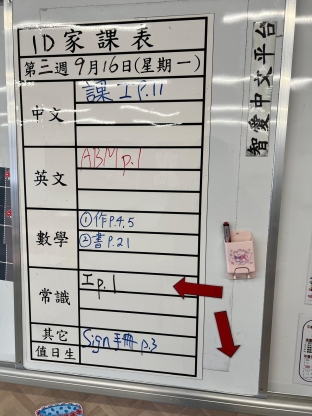 1D家課表
第三週9月16日(星期一)
中文 課工P.11
英文 ABM p.1
數學 ①作P.4,5
②書P.21
常識 工p.1
其它 Sign手冊p.3
值日生
智愛中文平台